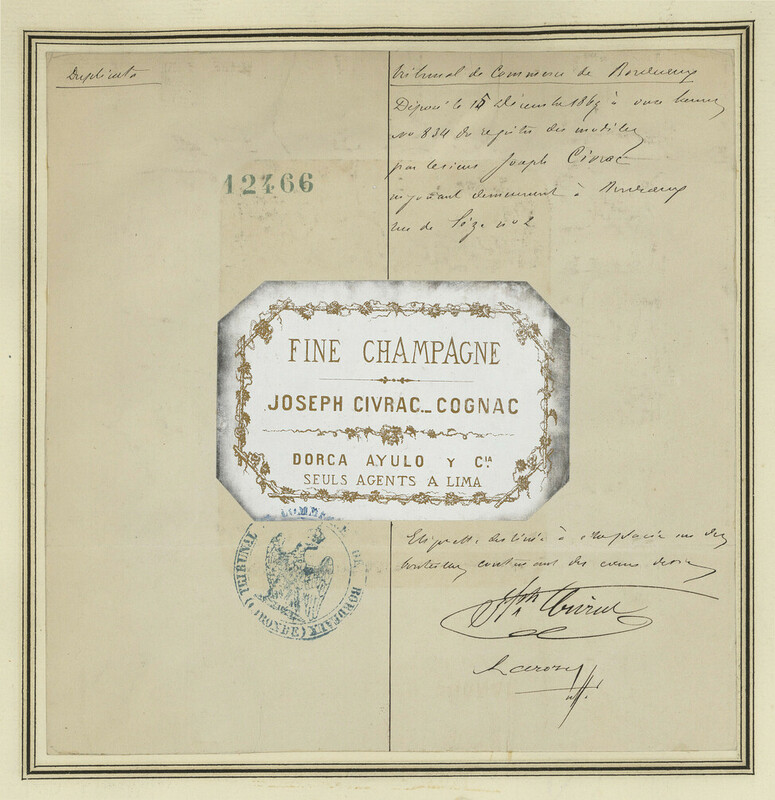 Duplicata
Tribunal de Commerce de Bordeaux
Déposé le 15 Décembre 1869 à onze heures
no 834 du registre des modèles
par le sieur Joseph Civrac
négociant demeurant à Bordeaux
rue de Sèze no 2
12466
FINE CHAMPAGNE
JOSEPH CIVRAC_ COGNAC
DORCA AYULO Y CIA.
SEULS AGENTS A LIMA
TRIBUNAL DE COMMERCE DE BORDEAUX
(GIRONDE)
Etiquette destinée à être placée sur des
bouteilles contenant des
Jph Civrac